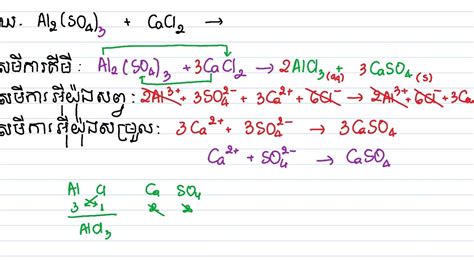 ឃ. Al₂(SO₄)₃ + CaCl₂ →
សមីការគីមី : Al₂(SO₄)₃ + 3CaCl₂ → 2AlCl₃(aq) + 3CaSO₄(s)
សមីការអ៊ីយ៉ុងសព្វ : 2Al³⁺ + 3SO₄²⁻ + 3Ca²⁺ + 6Cl⁻ → 2Al³⁺ + 6Cl⁻ + 3Ca
សមីការអ៊ីយ៉ុងសម្រួល: 3Ca²⁺ + 3SO₄²⁻ → 3CaSO₄
Ca²⁺ + SO₄²⁻ → CaSO₄
Al Cl Ca SO₄
3 1 2 2
AlCl₃